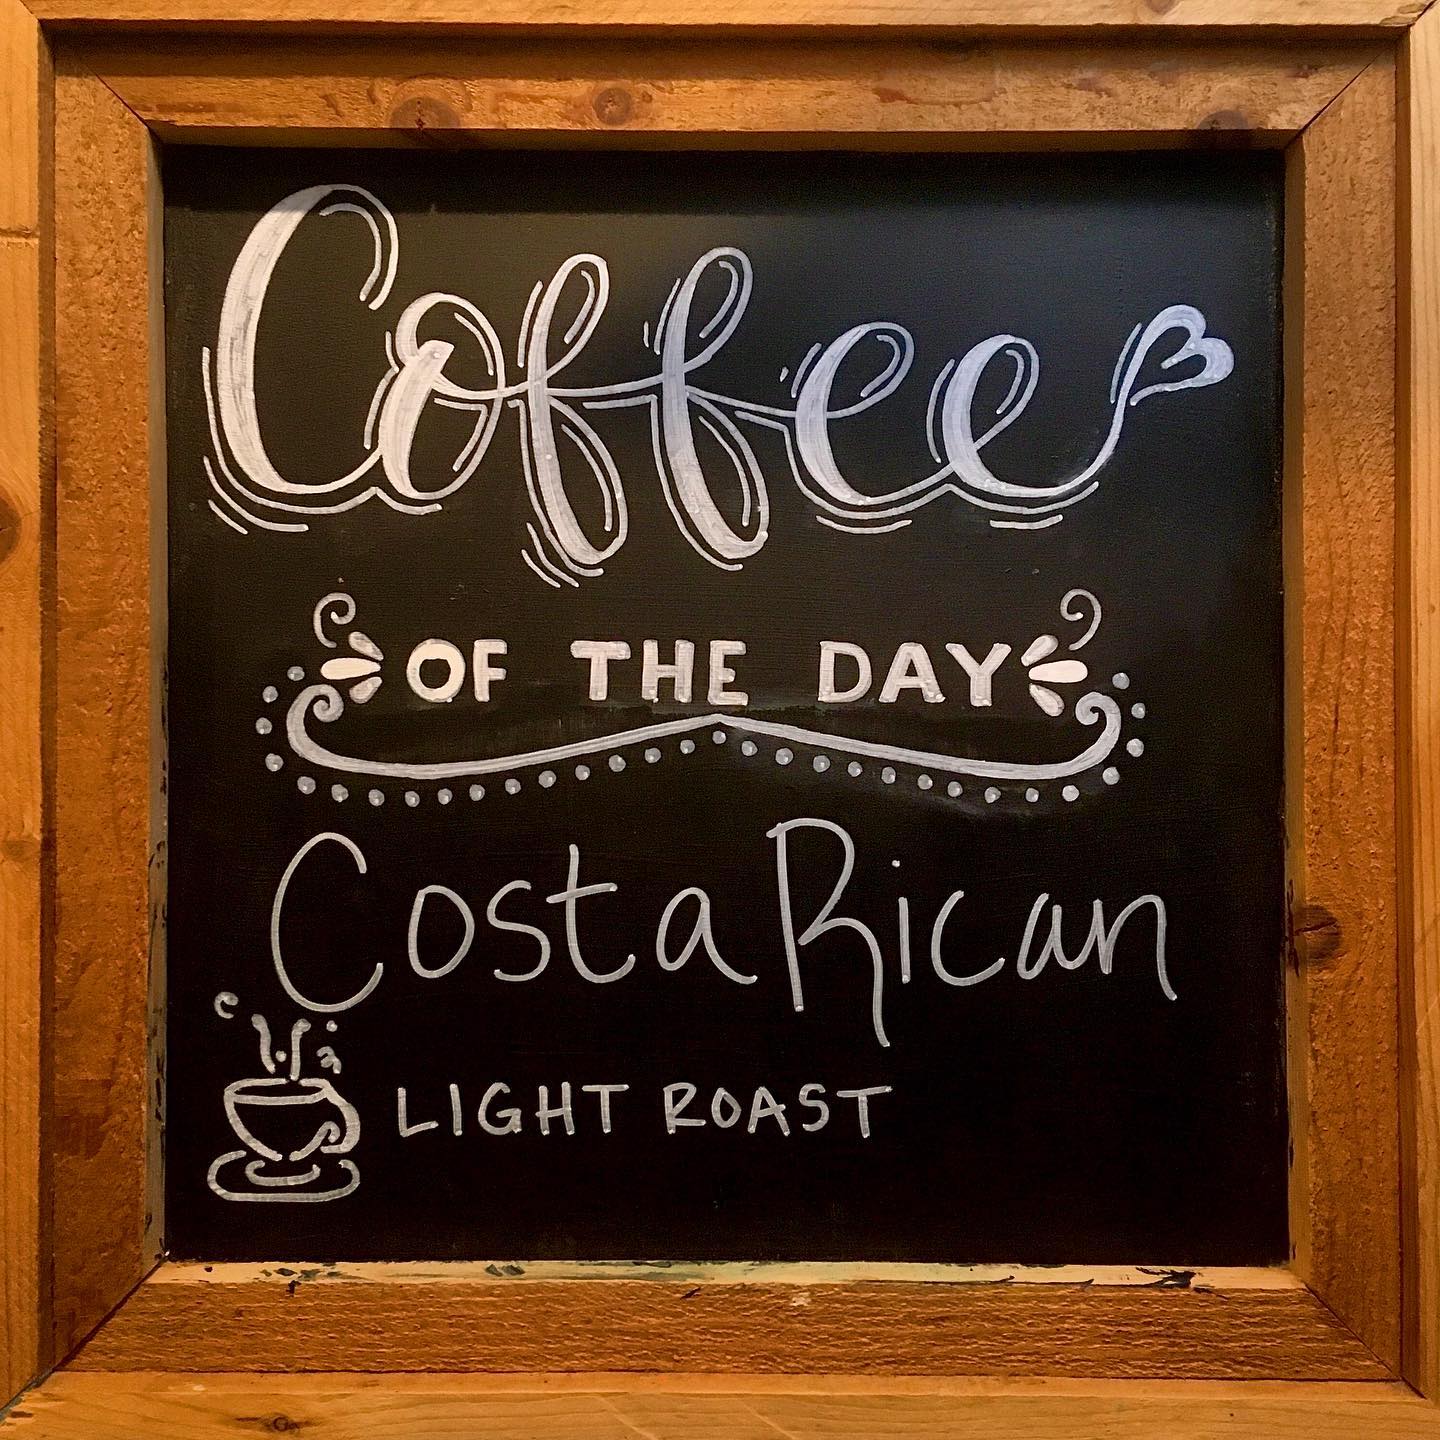 Coffee
OF THE DAY
Costa Rican
LIGHT ROAST